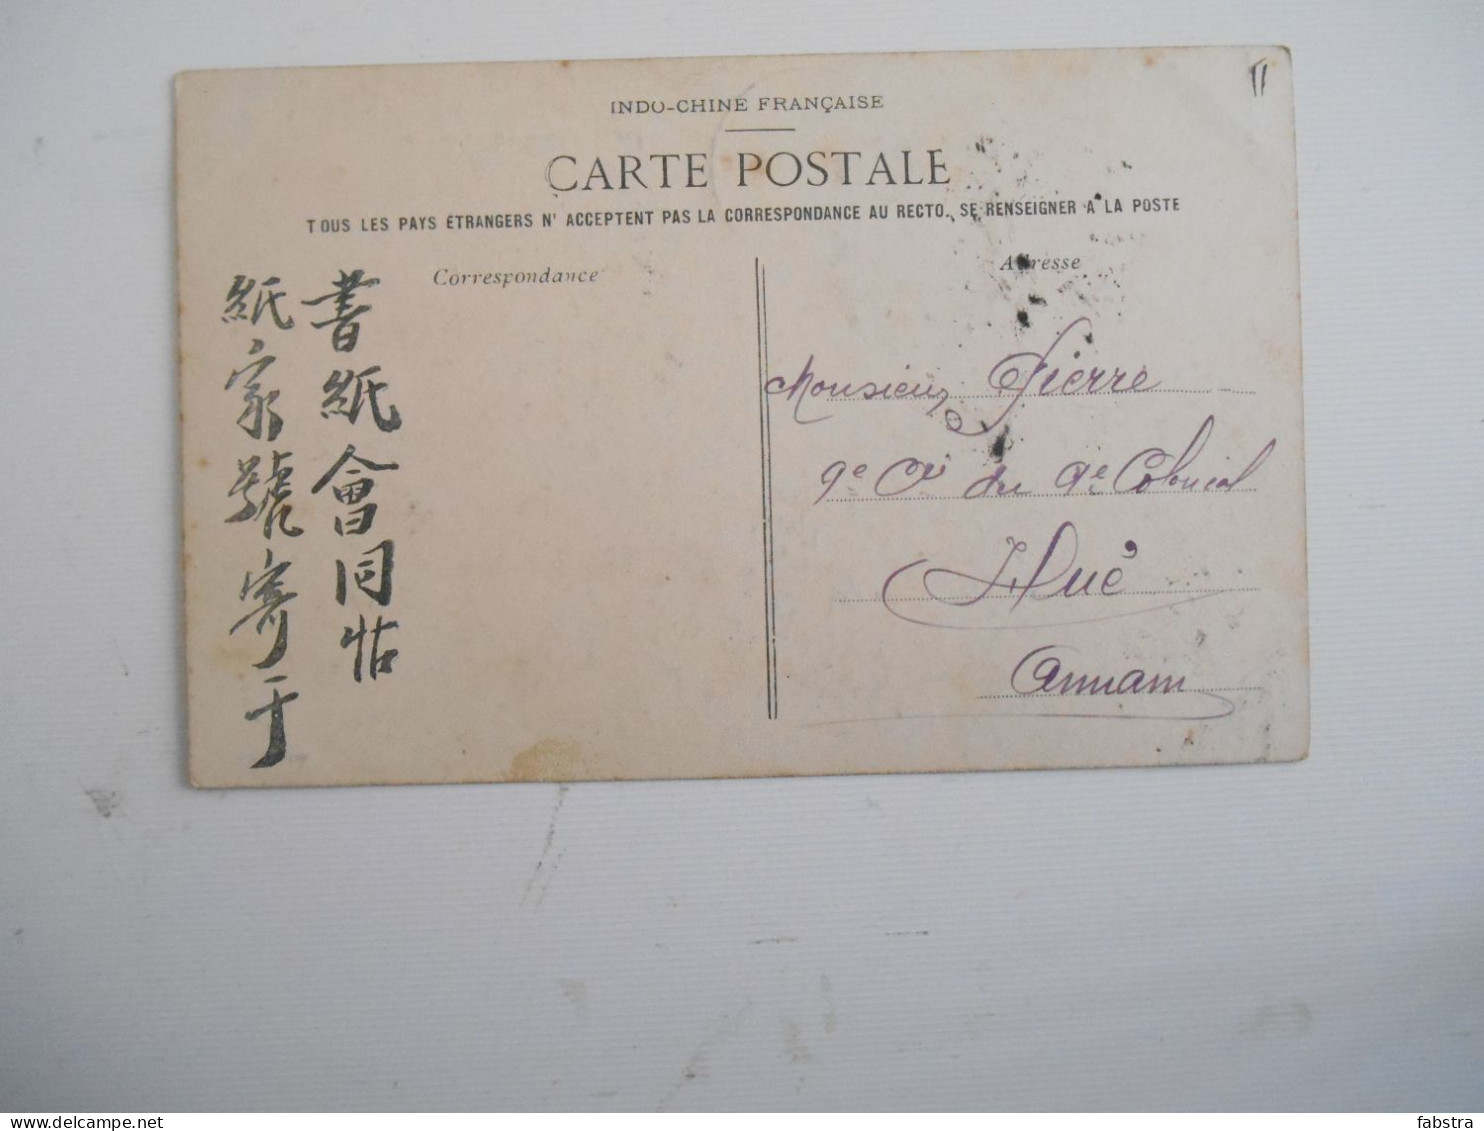 INDO-CHINE FRANÇAISE
CARTE POSTALE
TOUS LES PAYS ETRANGERS N' ACCEPTENT PAS LA CORRESPONDANCE AU RECTO. SE RENSEIGNER A LA POSTE
Correspondance
Adresse
書紙會同帖
紙家號寄于
Monsieur Pierre
9e Cie du 9e Colonial
Hué
Annam
fabstra